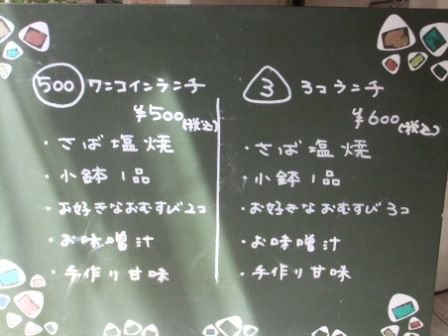 500 ワンコインランチ
¥500(税込)
・さば塩焼
・小鉢1品
・お好きなおむすび2コ
・お味噌汁
・手作り甘味
3 3コランチ
¥600(税込)
・さば塩焼
・小鉢1品
・お好きなおむすび3コ
・お味噌汁
・手作り甘味